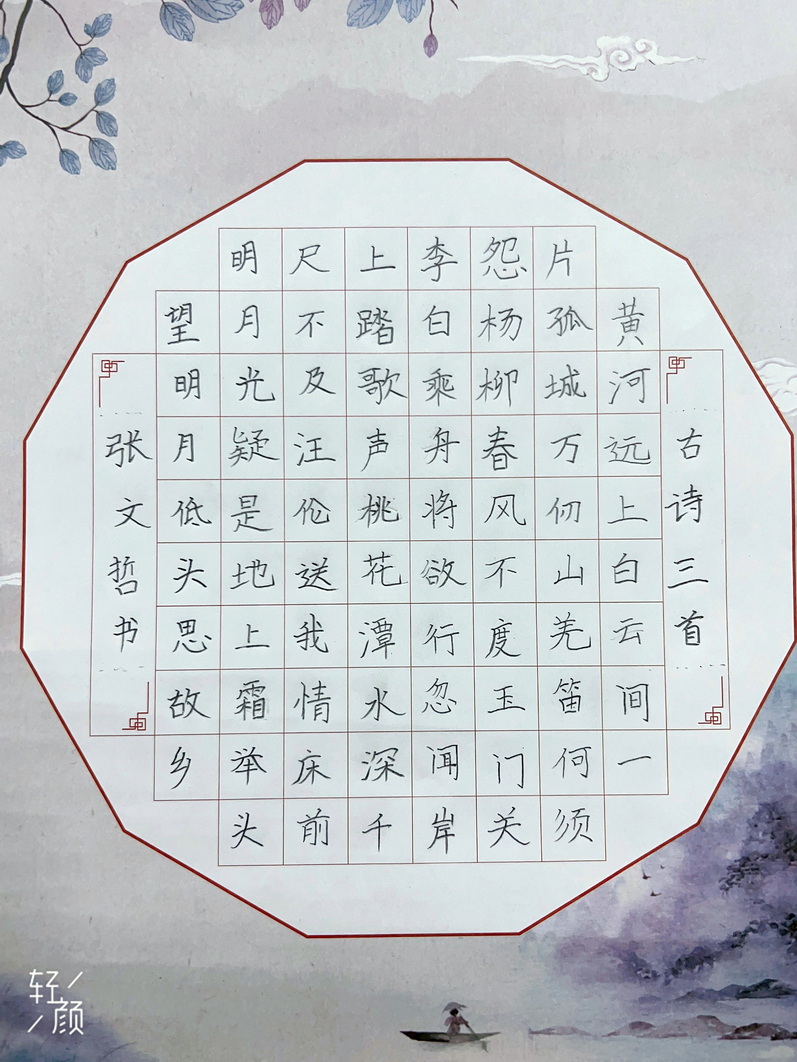 古诗三首
黄河远上白云间一
片孤城万仞山羌笛何须
怨杨柳春风不度玉门关
李白乘舟将欲行忽闻岸
上踏歌声桃花潭水深千
尺不及汪伦送我情床前
明月光疑是地上霜举头
望明月低头思故乡
张文哲书
轻颜